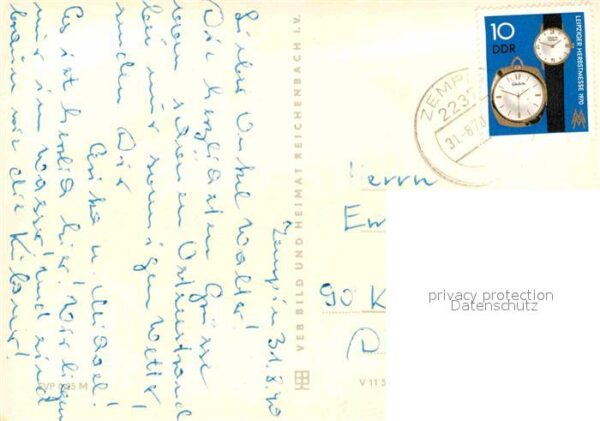 Zempin 31.8.70
Lieber Onkel Walter!
Die herzlichsten Grüße
vom schönen Ostseestrand
bei nur sonnigem Wetter,
senden Dir
u. Michael!
Es ist herrlich hier! Wir liegen
nur im Wasser und sind
braun wie die
EVP 0,25 M
VEB BILD UND HEIMAT REICHENBACH I. V.
V 11 5
10
DDR
LEIPZIGER HERBSTMESSE 1970
ZEMPI
223
31.-8.70
Herrn
90 K
privacy protection
Datenschutz